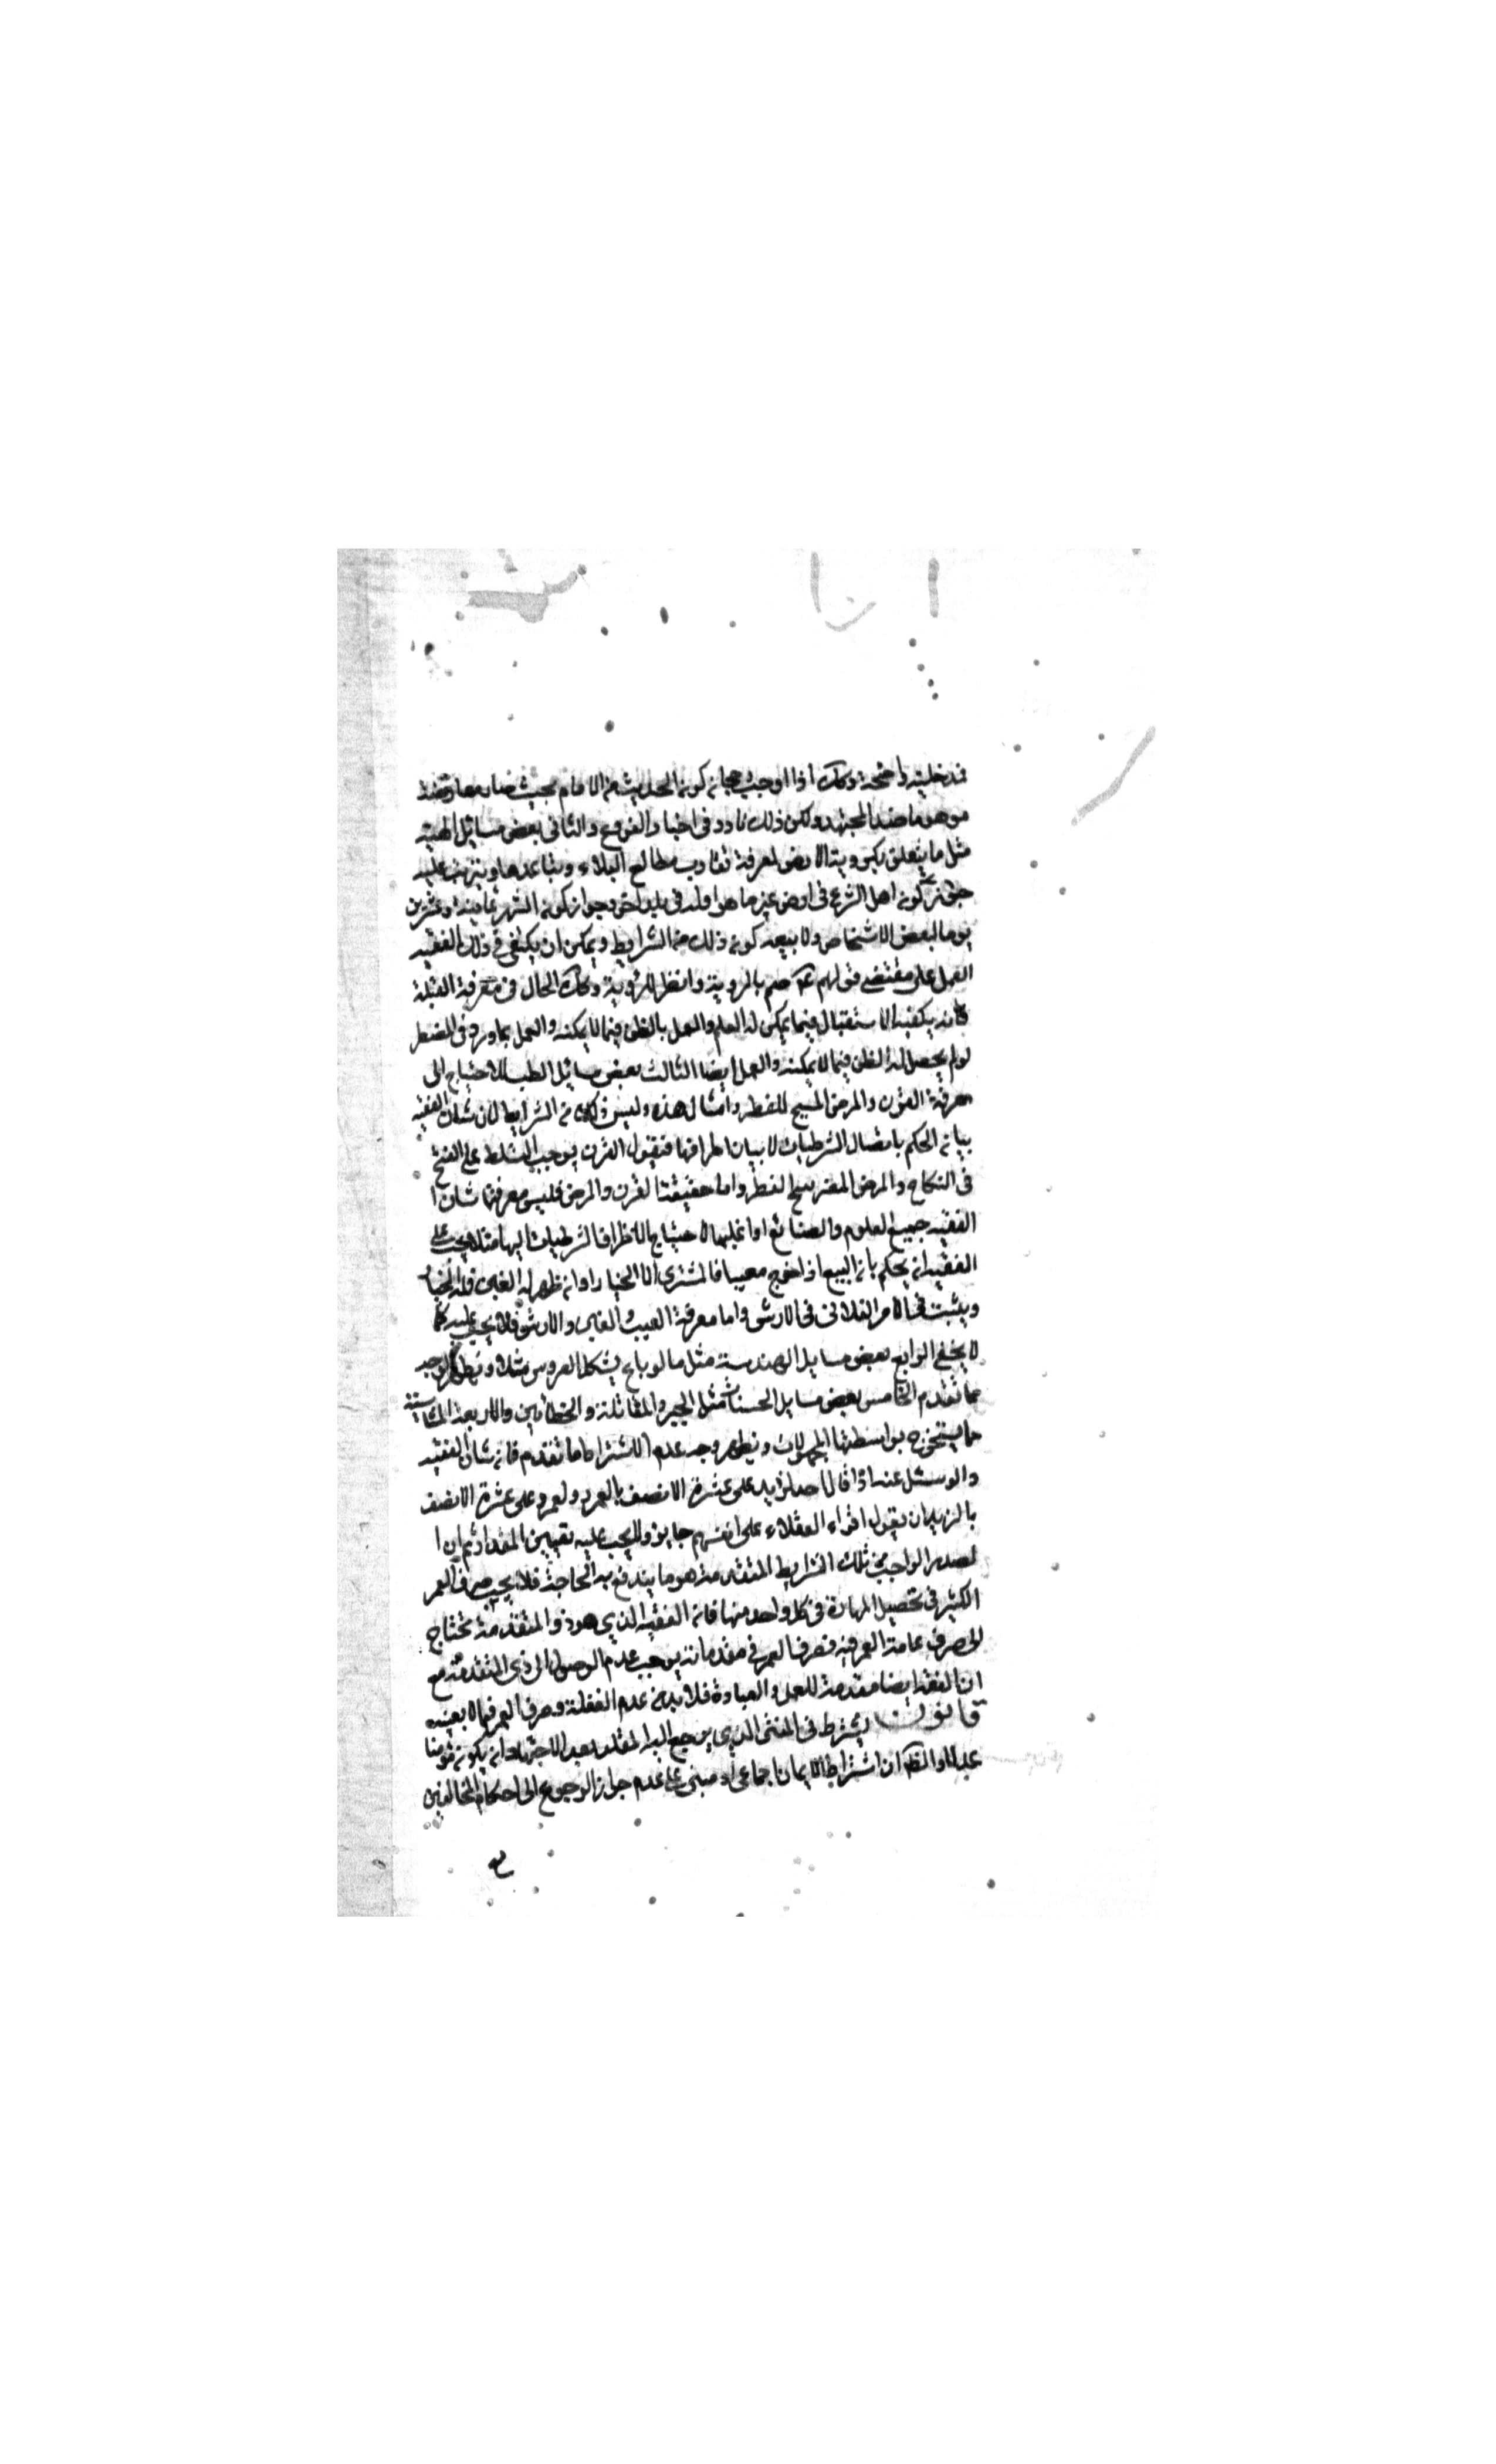 فمدخليته واضحة وكك اذا اوجب رجحان كون الحديث من الامام بحيث صار معارضه
موهوما عند المجتهد ولكن ذلك نادر فى اخبار الفروع والثانى بعض مسائل الهيئة
مثل ما يتعلق بكروية الارض لمعرفة تقارب مطالع البلاد وتباعدها ويترتب عليه
كون اهل الشرع فى ارض غير ما هو اول فى بلد اخر وجواز كون الشهر ثمانية وعشرين
يوما لبعض الاشخاص ولا يبعد كون ذلك من الشرايط ويمكن ان يكتفى فى ذلك الفقيه
العمل على مقتضى قولهم ع صم بالروية وافطر للرؤية وكك الحال فى معرفة القبلة
فانه يكفيه الاستقبال فيما يمكن له العلم والعمل بالظن فيما لا يمكنه والعمل بما ورد فى المضطر
لو لم يحصل له الظن فيما لا يمكنه والعمل ايضا الثالث بعض مسائل الطب للاحتياج الى
معرفة القرن والمرض المبيح للفطر وامثال هذه وليس ذلك من الشرايط لان شان الفقيه
بيان الحكم باتصال الشرطيات لا بيان اطرافها فيقول القرن يوجب التسلط على الفسخ
فى النكاح والمرض المضر مبيح الفطر واما حقيقة القرن والمرض فليس معرفتها شان ا
الفقيه جميع العلوم والصنائع او اغلبها لاحتياج الاطراف الشرطيات اليها مثلا يجب على
الفقيه ان يحكم بان البيع اذا خرج معيبا فالمشترى له الخيار او ان ظهر له الغبن فله الخيار
ويثبت فى الامر الفلانى فى الارش واما معرفة العيب والغبن والارش فلا يجب عليه كما
لا يخفى الرابع بعض مسايل الهندسة مثل ما لو باع بشكل العروس مثلا ويظهر الوجه
مما تقدم الخامس بعض مسايل الحساب مثل الجبر والمقابلة والخطائين والاربعة المتناسبة
مما يستخرج بواسطتها المجهولات ويظهر وجه عدم الاشتراط مما تقدم فان شان الفقيه
والو سئل عنه اذا قال احد لزيد على عشرة الا نصف ما لعمرو ولعمرو على عشرة الا نصف
ما لزيد ان يقول اقرار العقلاء على انفسهم جايز ولا يجب عليه تعيين المقدار ثم ان ا
لقدر الواجب من تلك الشرايط المتقدمة هو ما يندفع به الحاجة فلا يجب صرف العمر
الكثير فى تحصيل المهارة فى كل واحد منها فان الفقيه الذى هو ذو المقدمة يحتاج
الى صرف عامة العمر فيه فصرف العمر فى مقدماته يوجب عدم الوصول الى ذى المقدمة مع
ان الفقه ايضا مقدمة للعمل والعبادة فلا بد من عدم الغفلة وصرف العمر فيما لا يعنيه
قانون يشترط فى المفتى الذى يرجع اليه المقلد بعد الاجتهاد ان يكون مؤمنا
عدلا والظ ان اشتراط الايمان اجماعى او مبنى على عدم جواز الرجوع الى احكام المخالفين